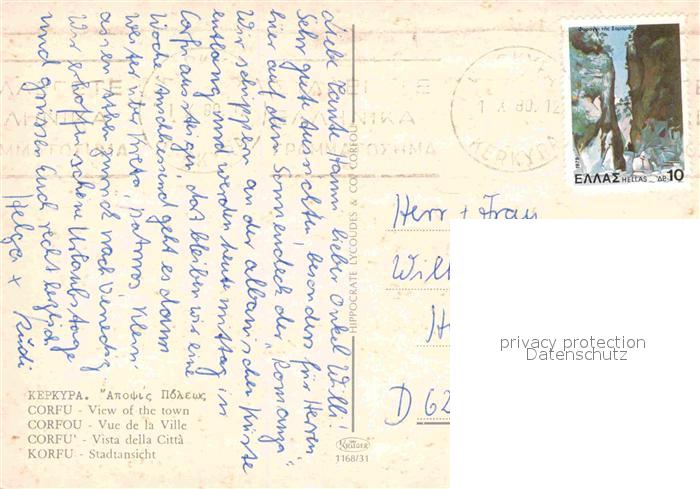 Liebe Tante Hanni, lieber Onkel Willi!
Sehr gute Aussichten, besonders für Herren
hier auf dem Sonnendeck der "Romanza".
Wir schippern an der albanischen Küste
entlang und werden heute mittag in
Corfu aussteigen, dort bleiben wir eine
Woche. Anschliessend geht es dann
weiter über Kreta, Patmos, Klein-
asien, nach Venedig
Wir erhoffen schöne Urlaubstage
und grüssen Euch recht herzlich
Helga + Rudi
ΚΕΡΚΥΡΑ. Ἄποψις Πόλεως
CORFU - View of the town
CORFOU - Vue de la Ville
CORFU' - Vista della Città
KORFU - Stadtansicht
HIPPOCRATE LYCOUDES & CO/ CORFOU
KRÜGER
1168/31
ΚΕΡΚΥΡΑ
80. 12
KEPKYPA
ΛΛΗΝΙΚΑ
ΓΡΑΜΜΑΤΟΣΗΜΑ
Φαράγγι τῆς Σαμαριᾶς
1979
ΕΛΛΑΣ HELLAS ΔΡ 10
Herr + Frau
D 62
privacy protection
Datenschutz